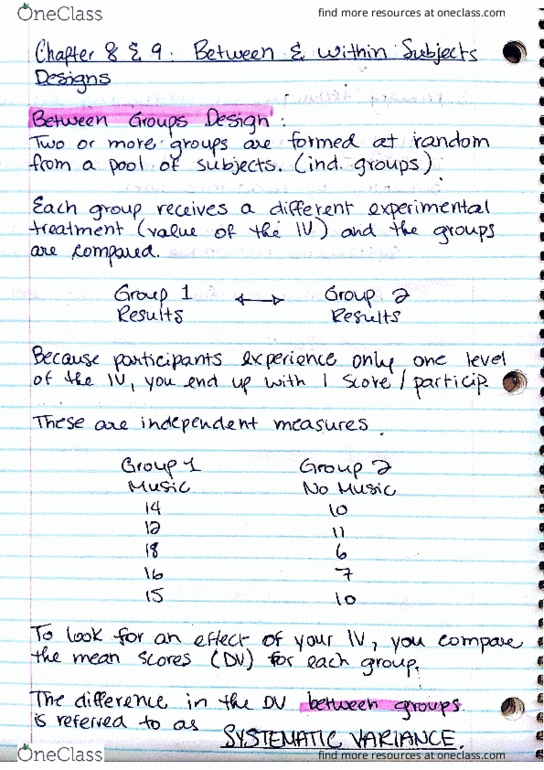 OneClass
find more resources at oneclass.com
Chapter 8 & 9: Between & Within Subjects
Designs
Between Groups Design:
Two or more groups are formed at random
from a pool of subjects. (ind. groups)
Each group receives a different experimental
treatment (value of the IV) and the groups
are compared.
Group 1 ↔ Group 2
Results Results
Because participants experience only one level
of the IV, you end up with 1 score/particip.
These are independent measures.
Group 1 Group 2
Music No Music
14 10
12 11
18 6
16 7
15 10
To look for an effect of your IV, you compare
the mean scores (DV) for each group.
The difference in the DV between groups
is referred to as SYSTEMATIC VARIANCE.
OneClass
find more resources at oneclass.com